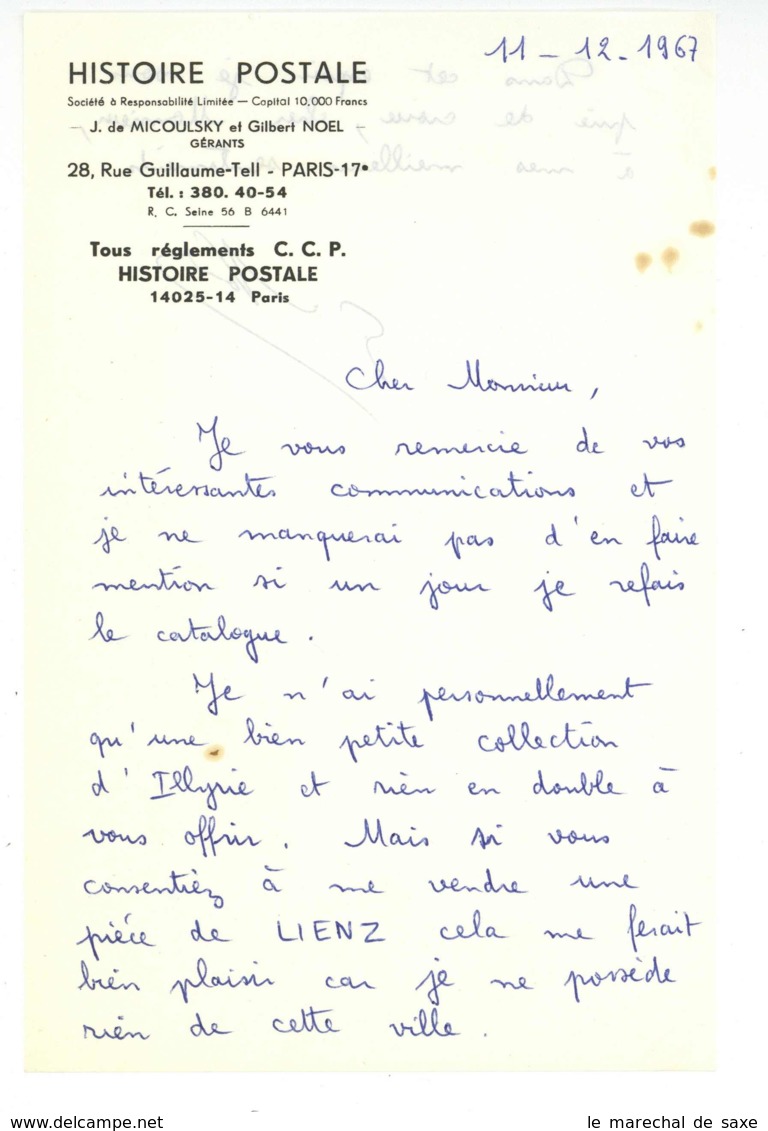 11 - 12 - 1967
HISTOIRE POSTALE
Société à Responsabilité Limitée — Capital 10,000 Francs
— J. de MICOULSKY et Gilbert NOEL —
GÉRANTS
28, Rue Guillaume-Tell - PARIS-17e
Tél. : 380. 40-54
R. C. Seine 56 B 6441
Tous réglements C. C. P.
HISTOIRE POSTALE
14025-14 Paris
Cher Monsieur,
Je vous remercie de vos
intéressantes communications et
je ne manquerai pas d'en faire
mention si un jour je refais
le catalogue.
Je n'ai personnellement
qu'une bien petite collection
d'Illyrie et rien en double à
vous offrir. Mais si vous
consentiez à me vendre une
pièce de LIENZ cela me ferait
bien plaisir car je ne possède
rien de cette ville.
www.delcampe.net
le marechal de saxe